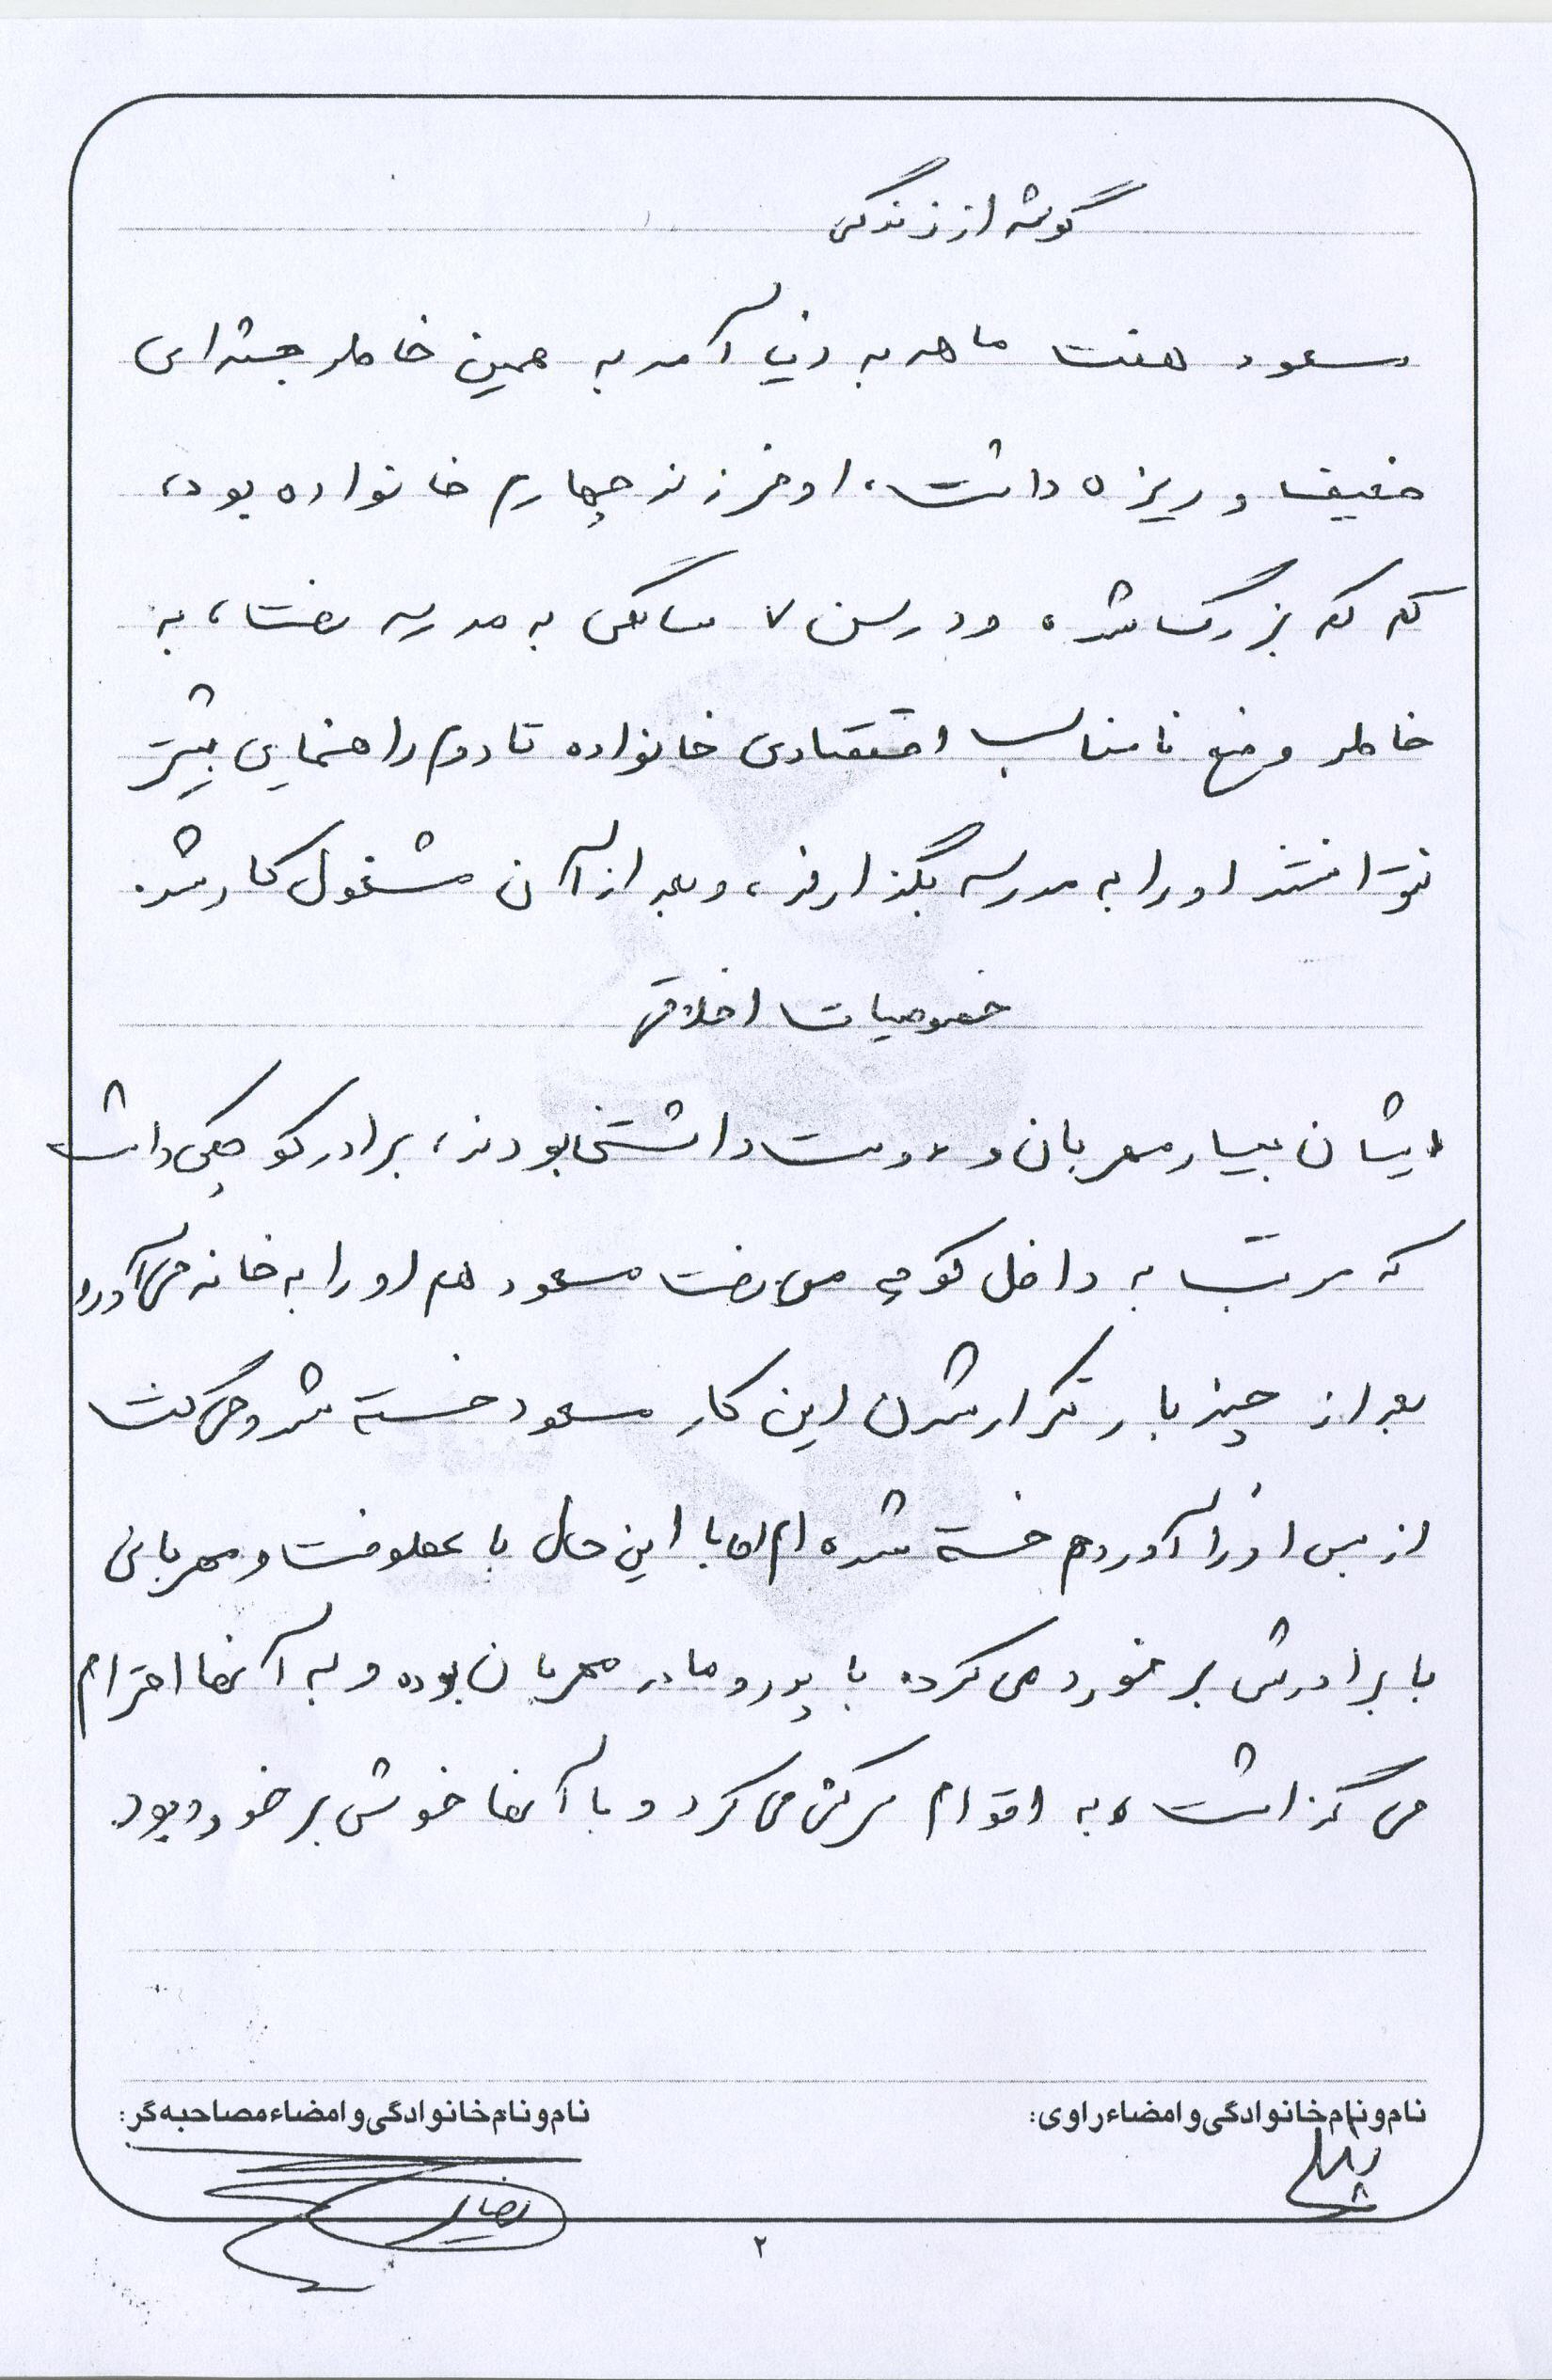 گوشه از زندگی
مسعود هفت ماهه به دنیا آمد به همین خاطر جثه ای
ضعیف و ریزه داشت، او فرزند چهارم خانواده بود،
که که بزرگ شده و در سن ۷ سالگی به مدرسه رفت، به
خاطر وضع نامناسب اقتصادی خانواده تا دوم راهنمایی بیشتر
نتوانستند او را به مدرسه بگذارند، و بعد از آن مشغول کار شد.
خصوصیات اخلاقی
ایشان بسیار مهربان و دوست داشتنی بودند، برادر کوچکی داشت
که مرتب به داخل کوچه می رفت مسعود هم او را به خانه می آورد
بعد از چند بار تکرار شدن این کار مسعود خسته شد و می گفت
از بس او را آوردم خسته شده ام اما با این حال با عطوفت و مهربانی
با برادرش برخورد می کرد. با پدر و مادر مهربان بوده و به آنها احترام
می گذاشت، به اقوام سرکشی می کرد و با آنها خوش برخورد بود.
نام و نام خانوادگی و امضاء راوی: نام و نام خانوادگی و امضاء مصاحبه گر:
۲